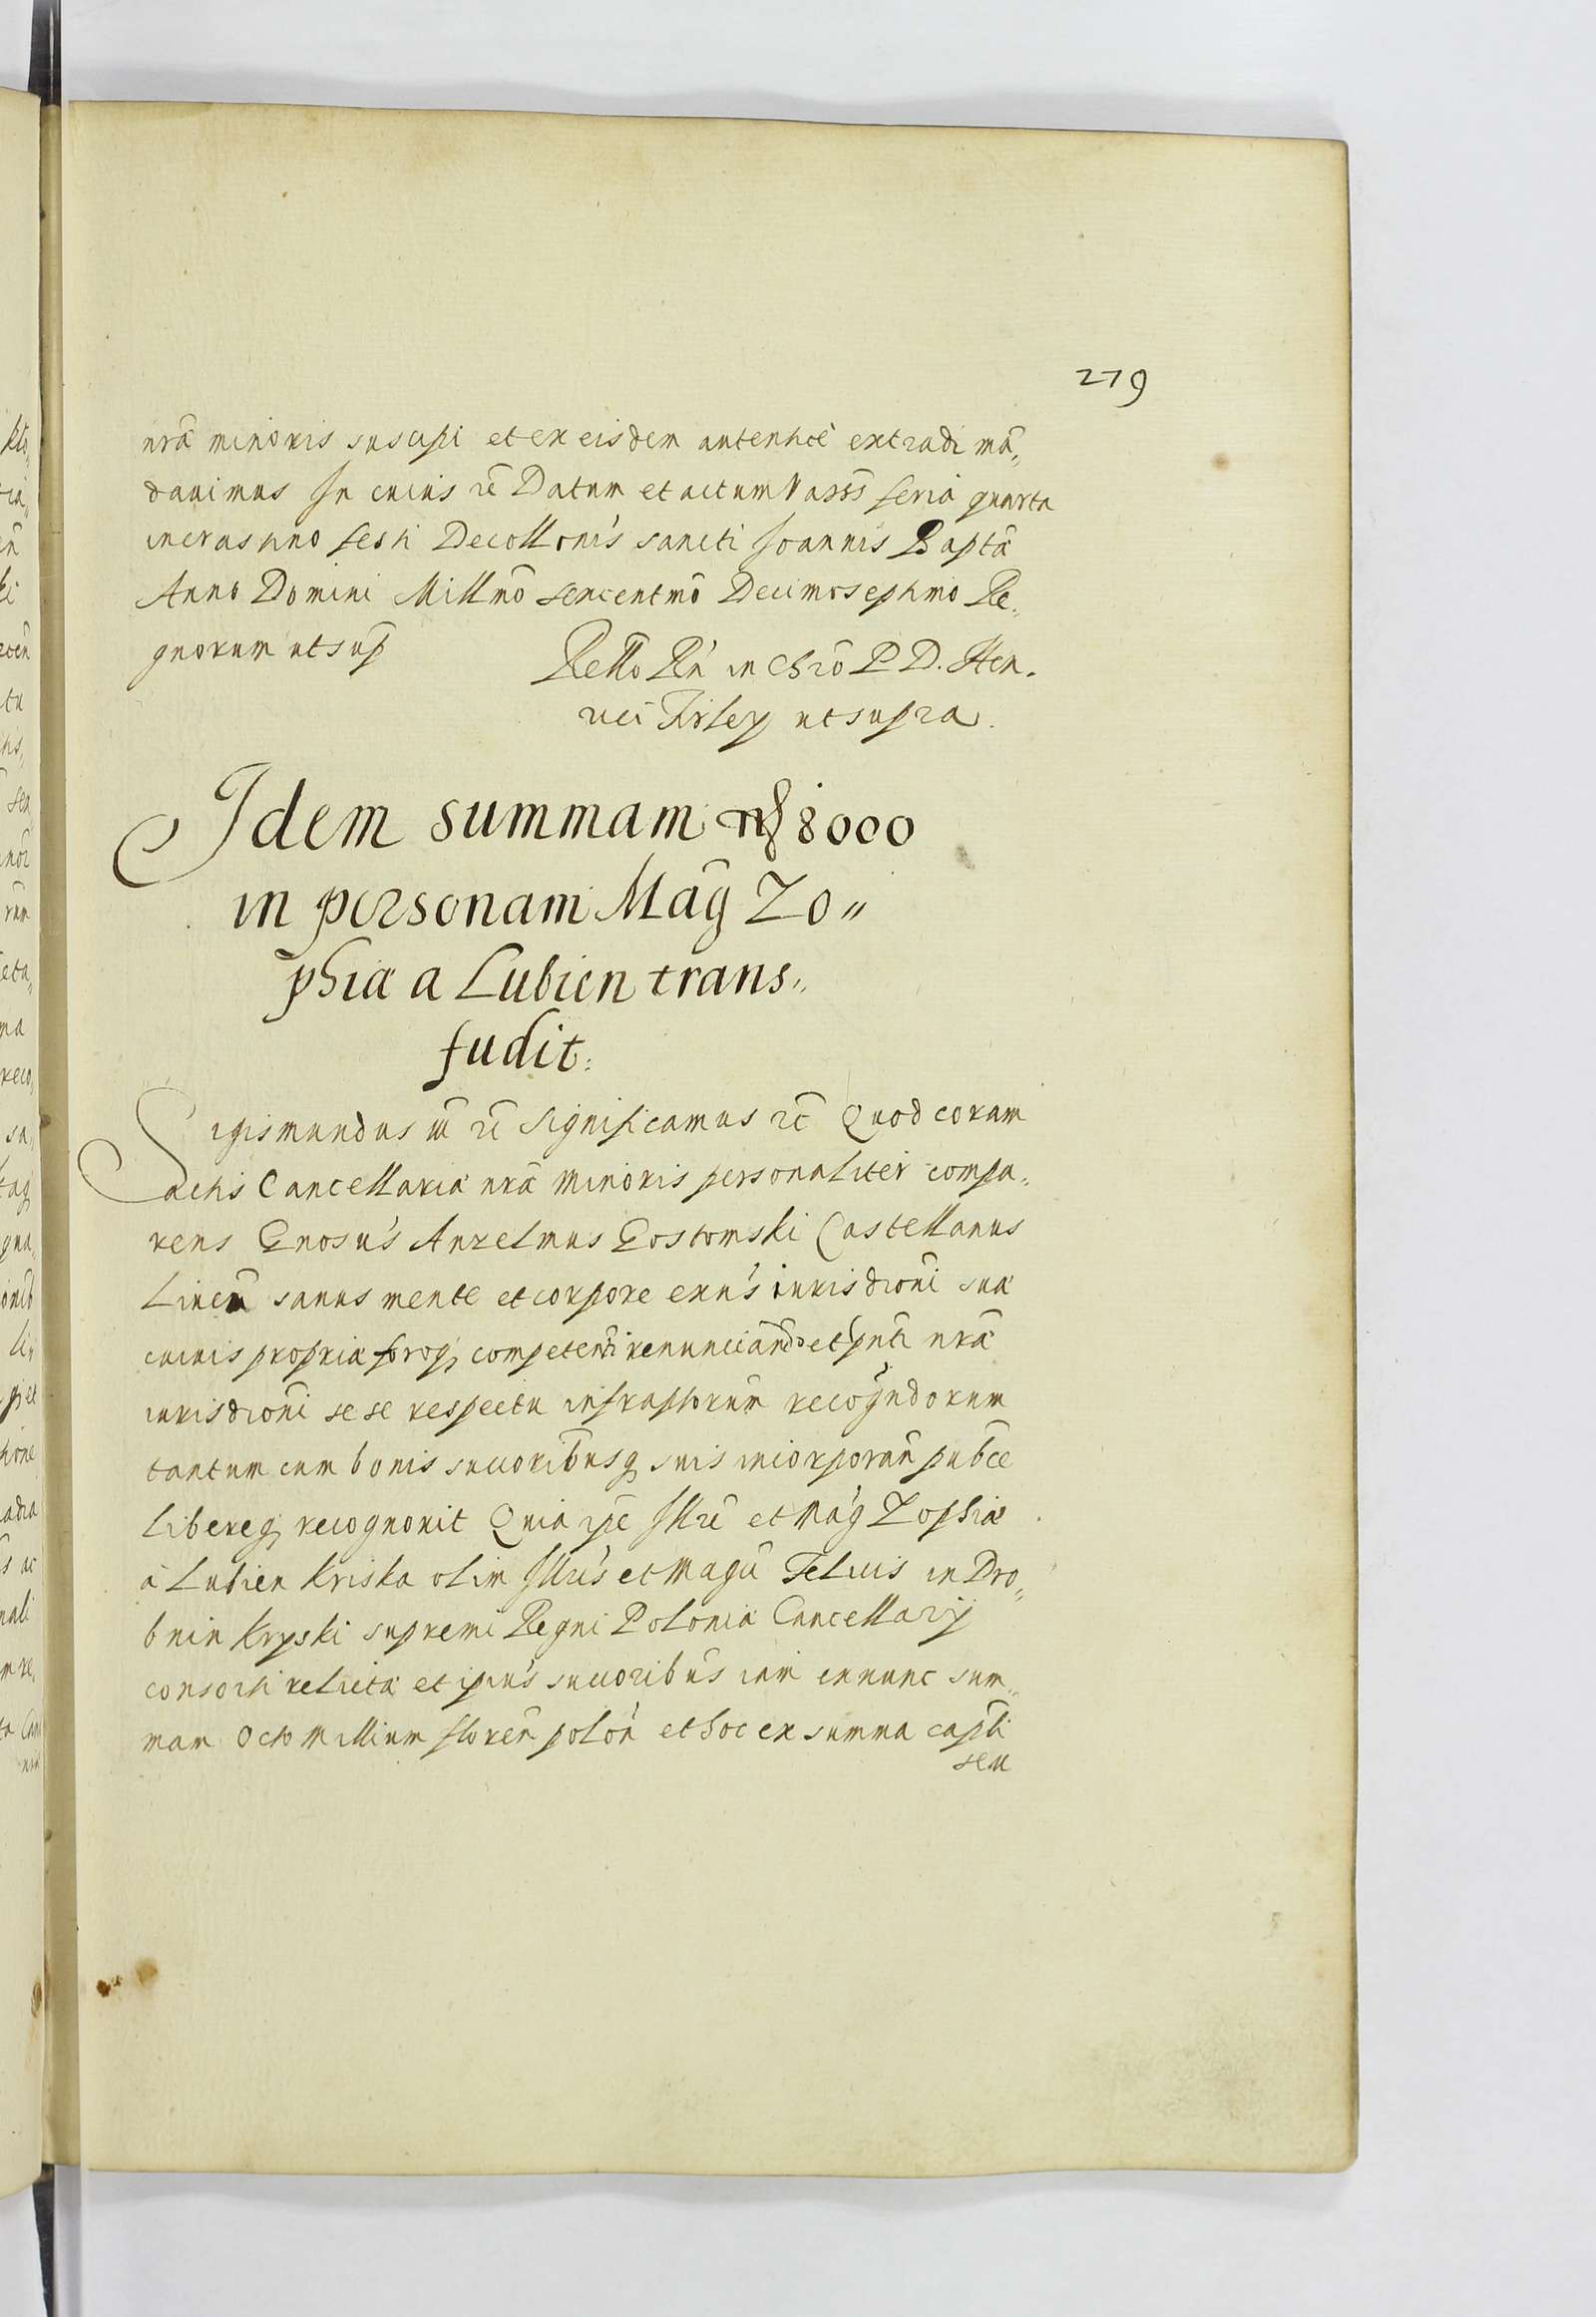 279
nrã minoris suscipi et ex eisdem autenticè extradi mã„
dauimus In cuius rẽ Datum et actum Varss̃ feria quarta
in crastino festi Decollonis sancti Joannis Baptã
Anno Domini Millmõ sexcentmõ Decimoseptimo Re„
gnorum ut sup̃
Rello Rñ in Chrõ P D. Hen„
rici Firley ut supra.
Idem summam 8000
in personam Mag̃ Zo„
phiæ a Lubien trans„
fudit.
Sigismundus III rẽ Significamus rẽ Quod coram
actis Cancellariæ nrã minoris personaliter compa„
rens Gnosus Anzelmus Gostomski Castellanus
sanus mente et corpore exñs iurisdioni suæ
cuiuis propriæ foroq, competenti renunciando et pñti nrã
iurisdioni sese respectu infraptorum recogndorum
tantum cum bonis succoribusq, suis incorporañ pubce
libereq, recognouit Quia ipẽ Illri et Mag Zophiæ
à Lubien Kriska olim Illris et Magci Felicis in Dro„
bnin Kryski supremi Regni Poloniæ Cancellarij
consorti relictæ et ipius succoribus iam ex nunc sum„
mam Octo Millium floren polon et hoc ex summa capĩli
seu